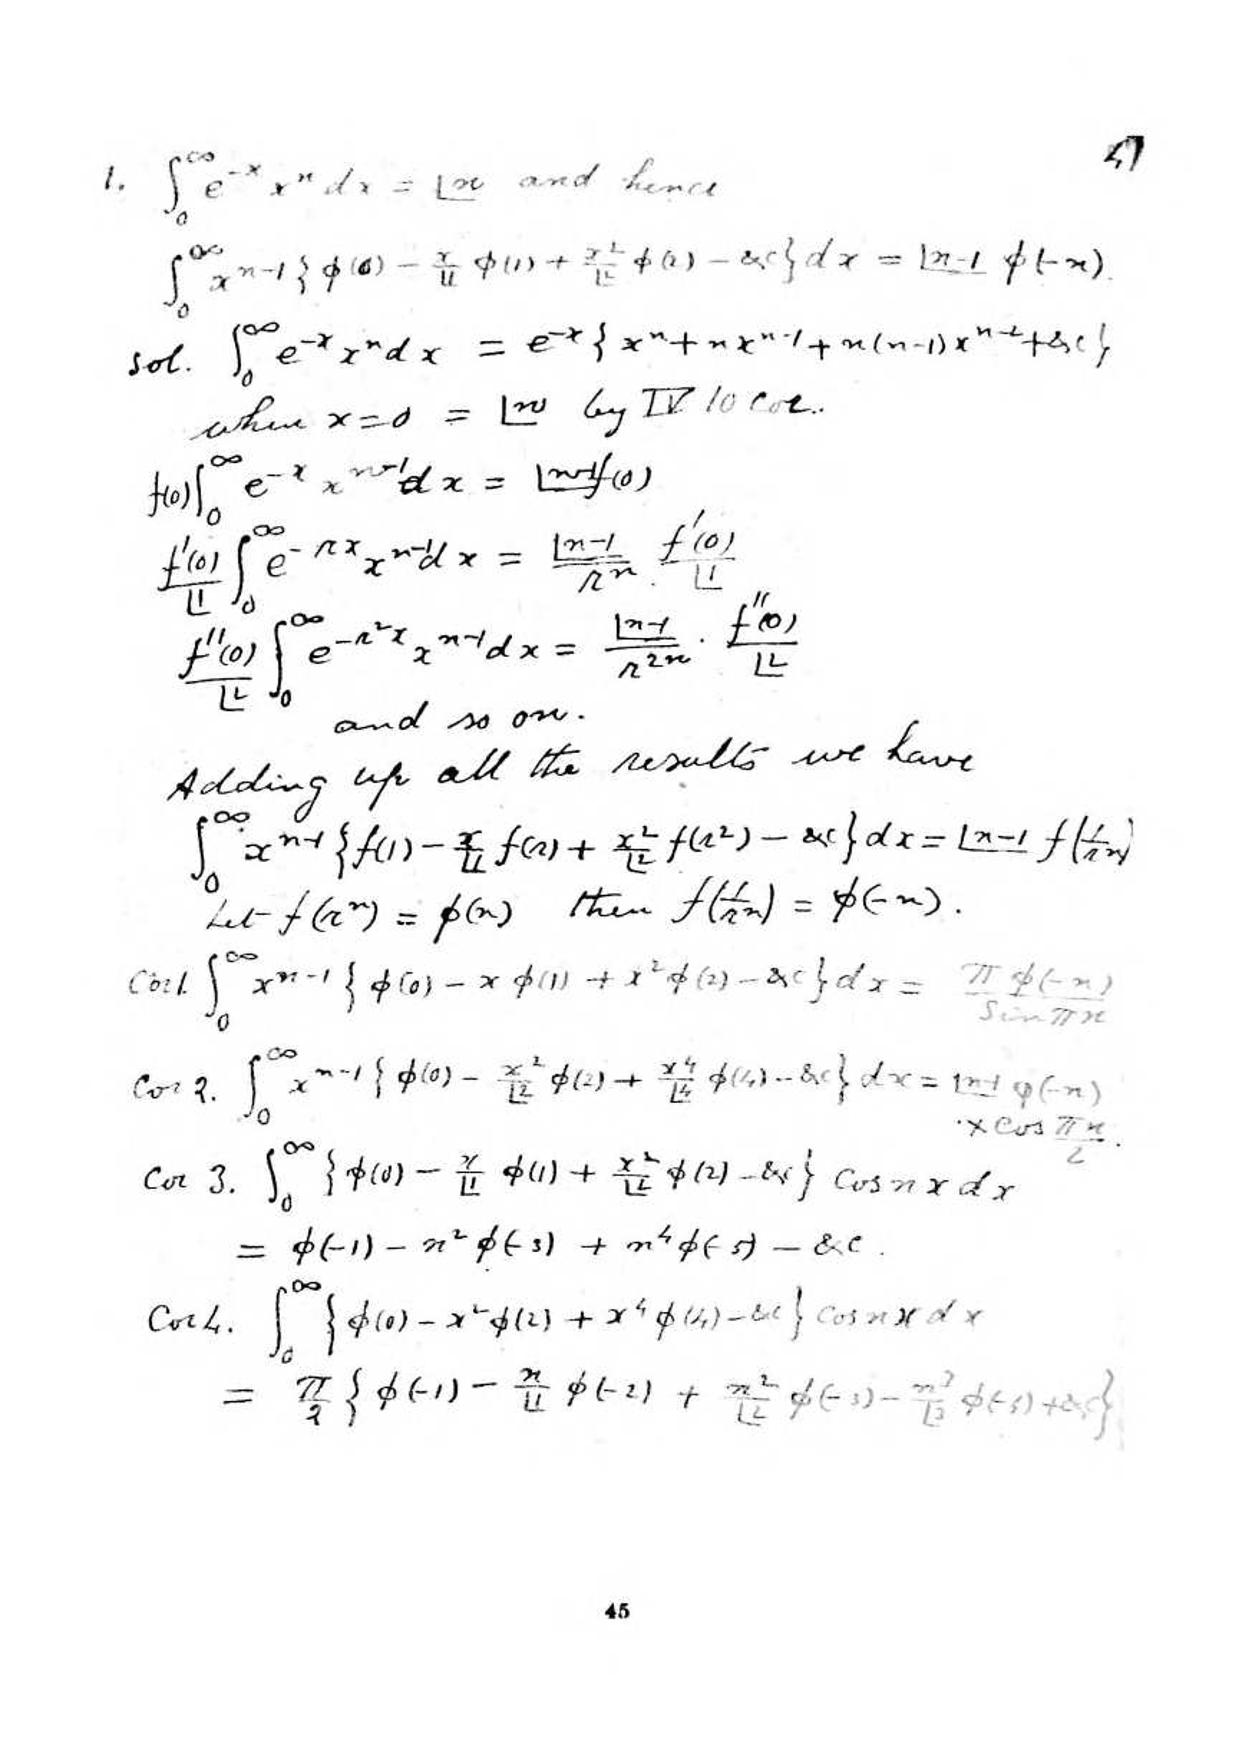 47
1. ∫₀^∞ e^{-x} x^n dx = |n and hence
∫₀^∞ x^{n-1} { φ(0) - x/|1 φ(1) + x²/|2 φ(2) - &c } dx = |n-1 φ(-n).
Sol. ∫₀^∞ e^{-x} x^n dx = e^{-x} { x^n + n x^{n-1} + n(n-1) x^{n-2} + &c }
when x = 0 = |n by IV 10 Cor.
f(0) ∫₀^∞ e^{-x} x^{n-1} dx = |n-1 f(0)
f'(0)/|1 ∫₀^∞ e^{-rx} x^{n-1} dx = |n-1/r^n . f'(0)/|1
f''(0)/|2 ∫₀^∞ e^{-r²x} x^{n-1} dx = |n-1/r^{2n} . f''(0)/|2
and so on.
Adding up all the results we have
∫₀^∞ x^{n-1} { f(1) - x/|1 f(r) + x²/|2 f(r²) - &c } dx = |n-1 f(1/r^n)
Let f(r^n) = φ(n) then f(1/r^n) = φ(-n).
Cor 1. ∫₀^∞ x^{n-1} { φ(0) - x φ(1) + x² φ(2) - &c } dx = π φ(-n)/Sin πn
Cor 2. ∫₀^∞ x^{n-1} { φ(0) - x²/|2 φ(2) + x⁴/|4 φ(4) - &c } dx = |n-1 φ(-n)
× Cos πn/2.
Cor 3. ∫₀^∞ { φ(0) - x/|1 φ(1) + x²/|2 φ(2) - &c } Cos nx dx
= φ(-1) - n² φ(-3) + n⁴ φ(-5) - &c.
Cor 4. ∫₀^∞ { φ(0) - x² φ(2) + x⁴ φ(4) - &c } Cos nx dx
= π/2 { φ(-1) - n/|1 φ(-2) + n²/|2 φ(-3) - n³/|3 φ(-4) + &c }
45